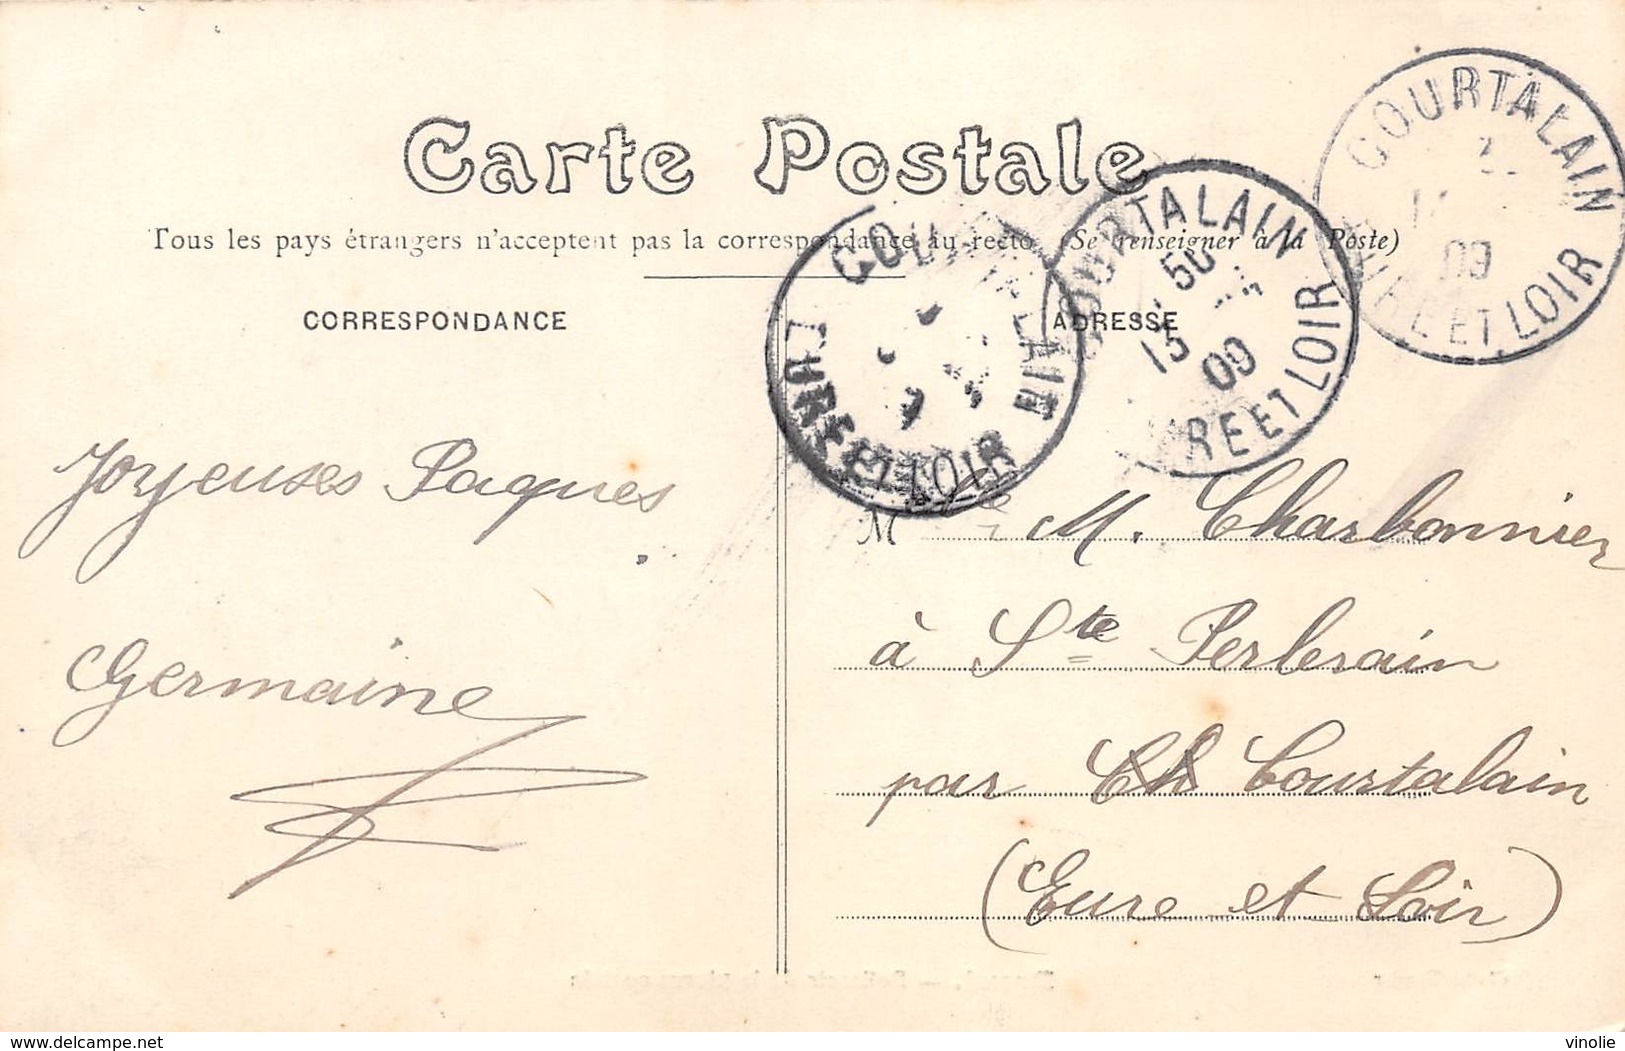 Carte Postale
Tous les pays étrangers n'acceptent pas la correspondance au recto (Se renseigner à la Poste)
CORRESPONDANCE
ADRESSE
COURTALAIN
09
EURE ET LOIR
COURTALAIN
13 50
09
EURE ET LOIR
COURTALAIN
EURE ET LOIR
Joyeuses Paques
Germaine
M lle M. Charbonnier
à Ste Perlerain
par Ch Courtalain
(Eure et Loir)
www.delcampe.net
vinolie